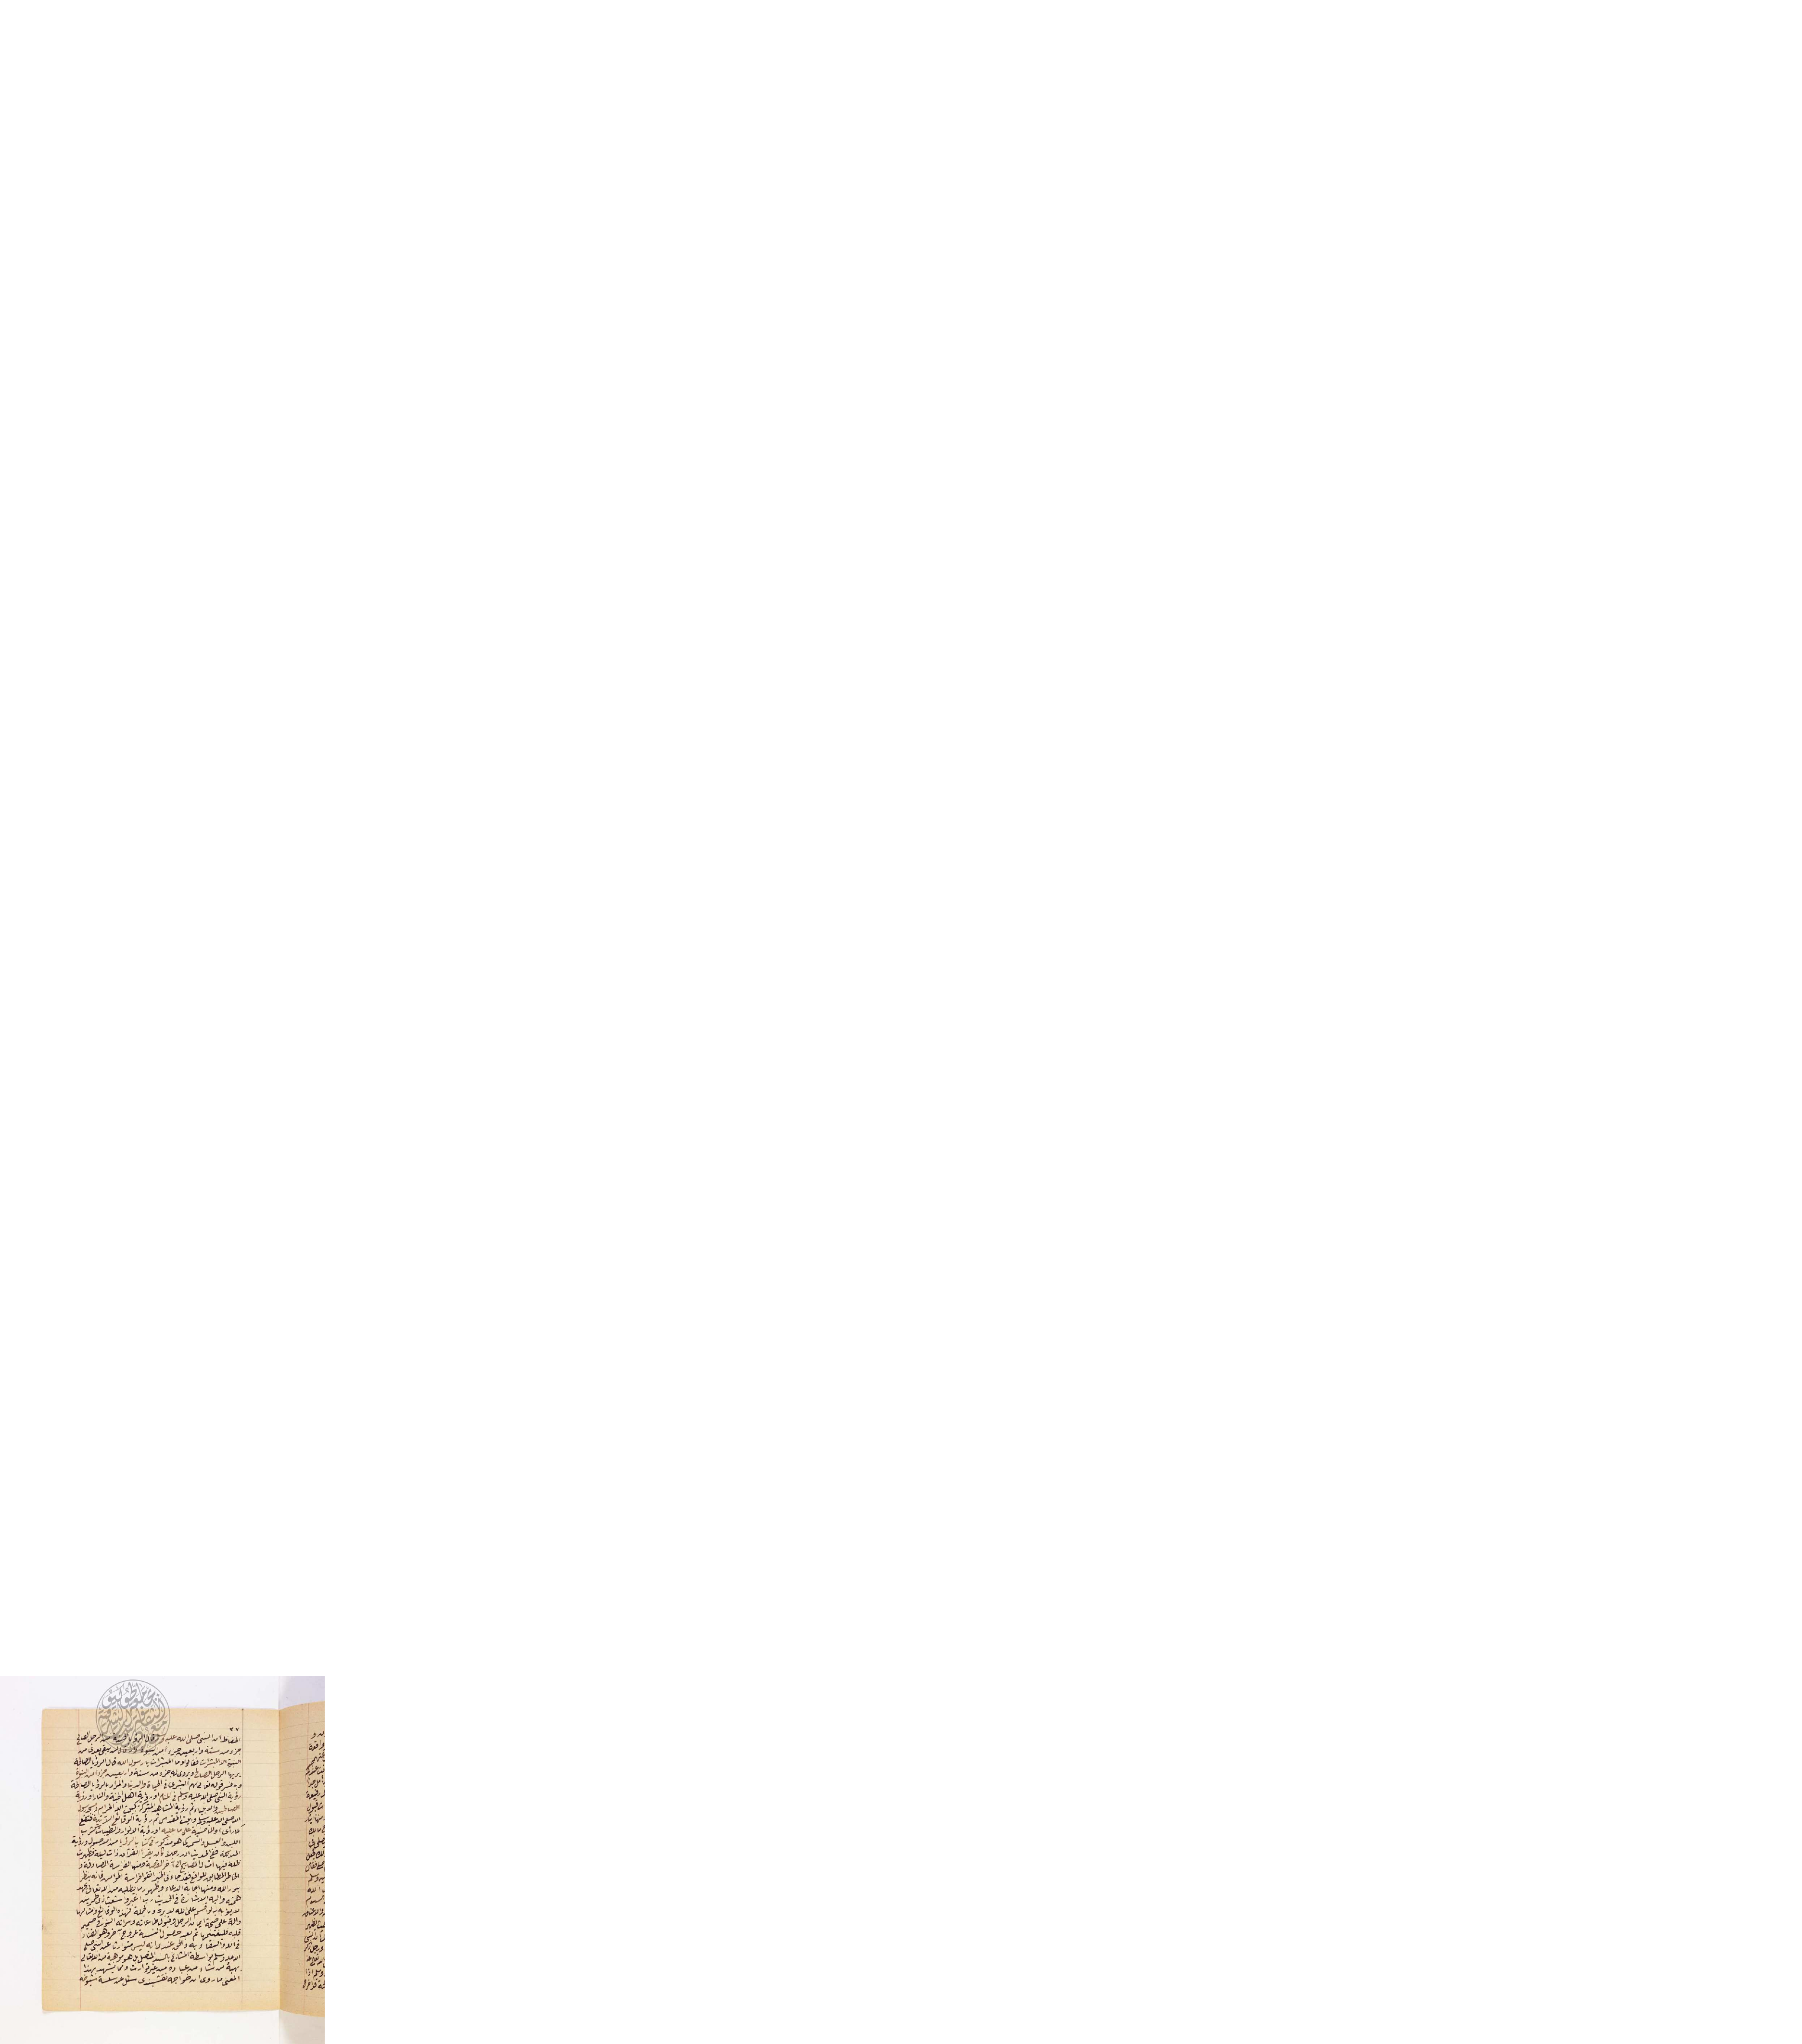 ٧٧
الخطاط ان النبي صلى الله عليه وسلم قال الرؤيا الحسنة من الرجل الصالح
جزء من ستة واربعين جزءا من النبوة وقال لن يبقى بعدى من
النبوة الا المبشرات فقالوا وما المبشرات يا رسول الله قال الرؤيا الصالحة
يريها الرجل الصالح او ترى له جزء من ستة واربعين جزءا من النبوة
وبه فسر قوله تعالى لهم البشرى في الحياة الدنيا والمراد بالرؤيا الصالحة
رؤية النبي صلى الله عليه وسلم في المنام او رؤية اهل الجنة والنار او رؤية
الصالحين والانبياء ثم رؤية المشاهد المتبركة كبيت الله الحرام ومسجد رسول
الله صلى الله عليه وسلم وبيت المقدس ثم رؤية الوقائع الآتية فتقع
كما رأى او الماضية على ما عليه او رؤية الانوار والطيبات كشرب
اللبن والعسل والسمن كما هو مذكور في كتاب الرؤيا من الاصول ورؤية
الملائكة ففي الحديث ان رجلا كان يقرأ القرآن ذات ليلة فظهرت
ظلة فيها امثال المصابيح الى آخر القصة ومنها الفراسة الصادقة و
الخاطر المطابق للواقع فقد جاء في الخبر اتقوا فراسة المؤمن فانه ينظر
بنور الله ومنها اجابة الدعاء وظهور ما يطلبه من الله تعالى بجهد
همته واليه الاشارة في الحديث رب اغبر واشعث ذى طمرين
لا يؤبه به لو اقسم على الله لابره وبالجملة فهذه الوقائع وامثالها
دالة على صحة ايمان الرجل وقبول طاعاته وسراية النور في صميم
قلبه فليغتنمها ثم بعد حصول النسبة عروج آخر وهو الفناء
في الله والبقاء به والحق عندى انه ليس متوارثا عن النبي صلى
الله عليه وسلم بواسطة المشائخ بالسند المتصل بل هو موهبة من الله تعالى
يهبه من شاء من عباده من غير توارث ومما يشهد لهذا
المعنى ما روى ان خواجه نقشبندى سئل عن سلسلة شيوخه